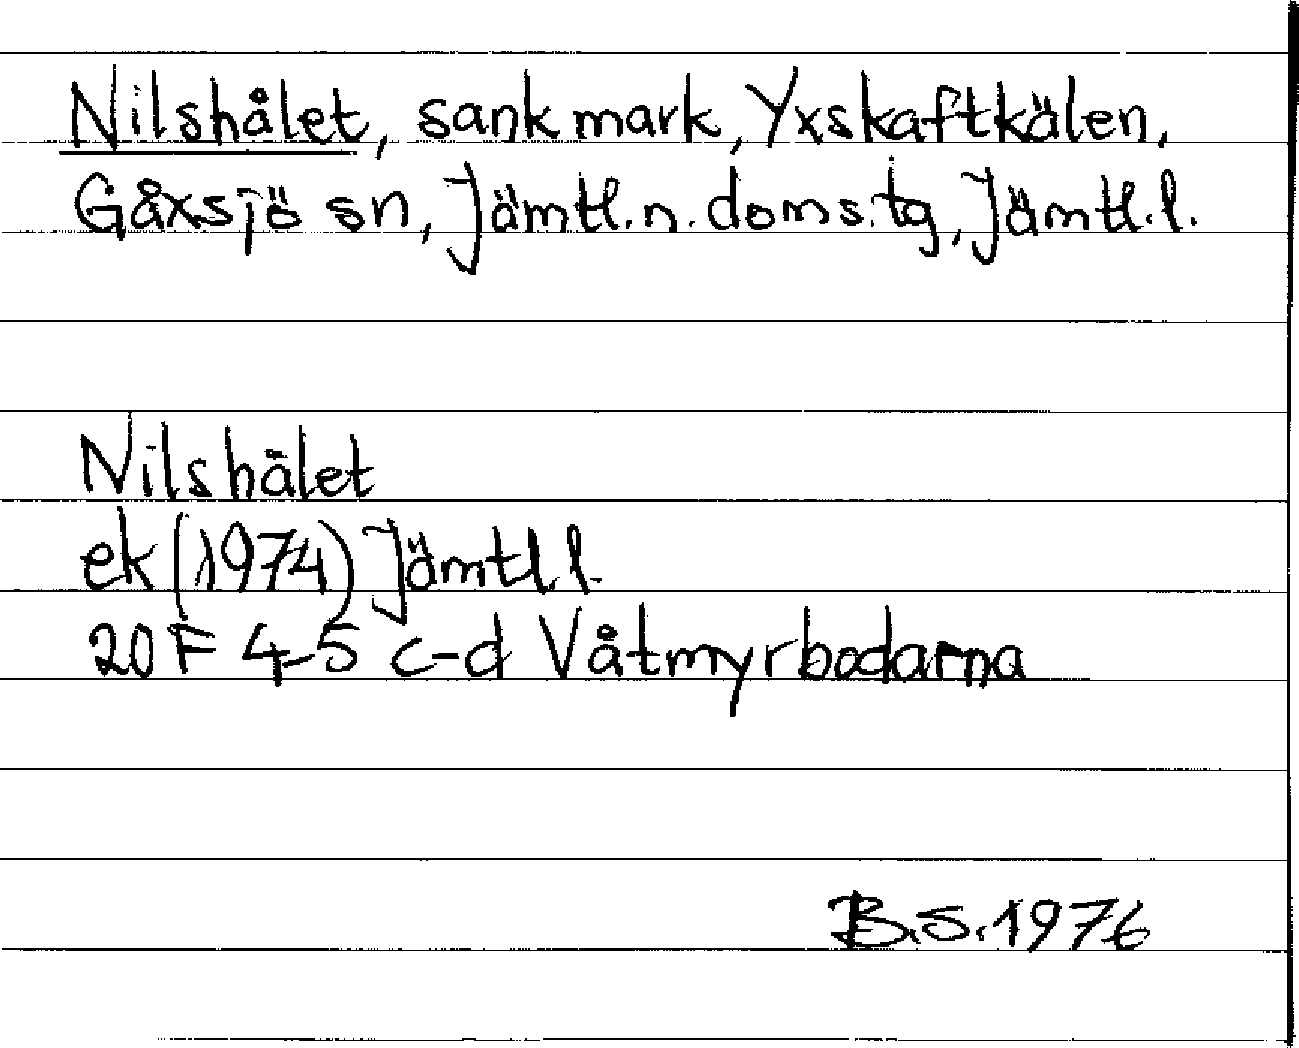 Nilshålet, sank mark, Yxskaftkälen,
Gåxsjö sn, Jämtl.n.doms.tg, Jämtl.l.
Nilshålet
ek (1974) Jämtl.l.
20 F 4-5 c-d Våtmyrbodarna
B.S.1976